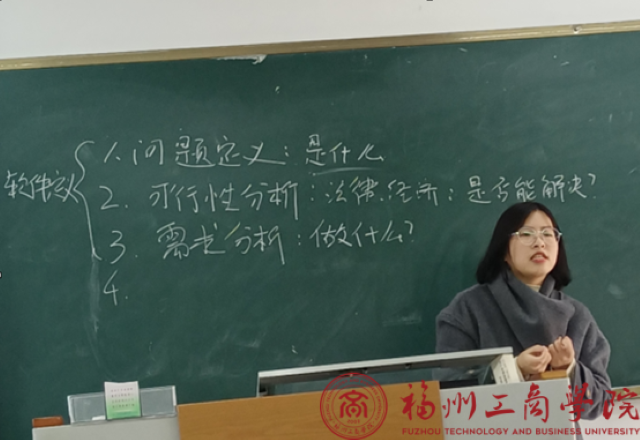 软件定义
1. 问题定义：是什么
2. 可行性分析：法律、经济：是否能解决？
3. 需求分析：做什么？
4.
福州工商学院
FUZHOU TECHNOLOGY AND BUSINESS UNIVERSITY